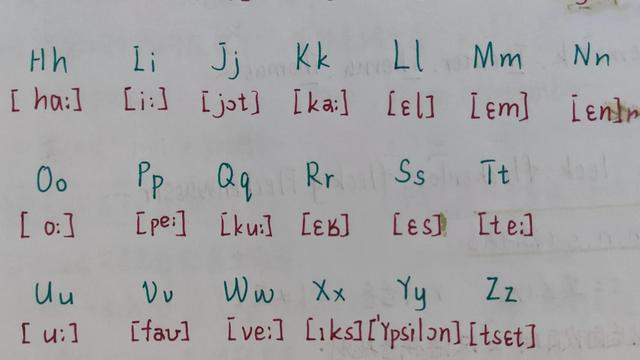 Hh Ii Jj Kk Ll Mm Nn
[ha:] [i:] [jɔt] [ka:] [ɛl] [ɛm] [ɛn]
Oo Pp Qq Rr Ss Tt
[o:] [pe:] [ku:] [ɛʁ] [ɛs] [te:]
Uu Vv Ww Xx Yy Zz
[u:] [faʊ] [ve:] [ɪks] ['ʏpsilɔn] [tsɛt]